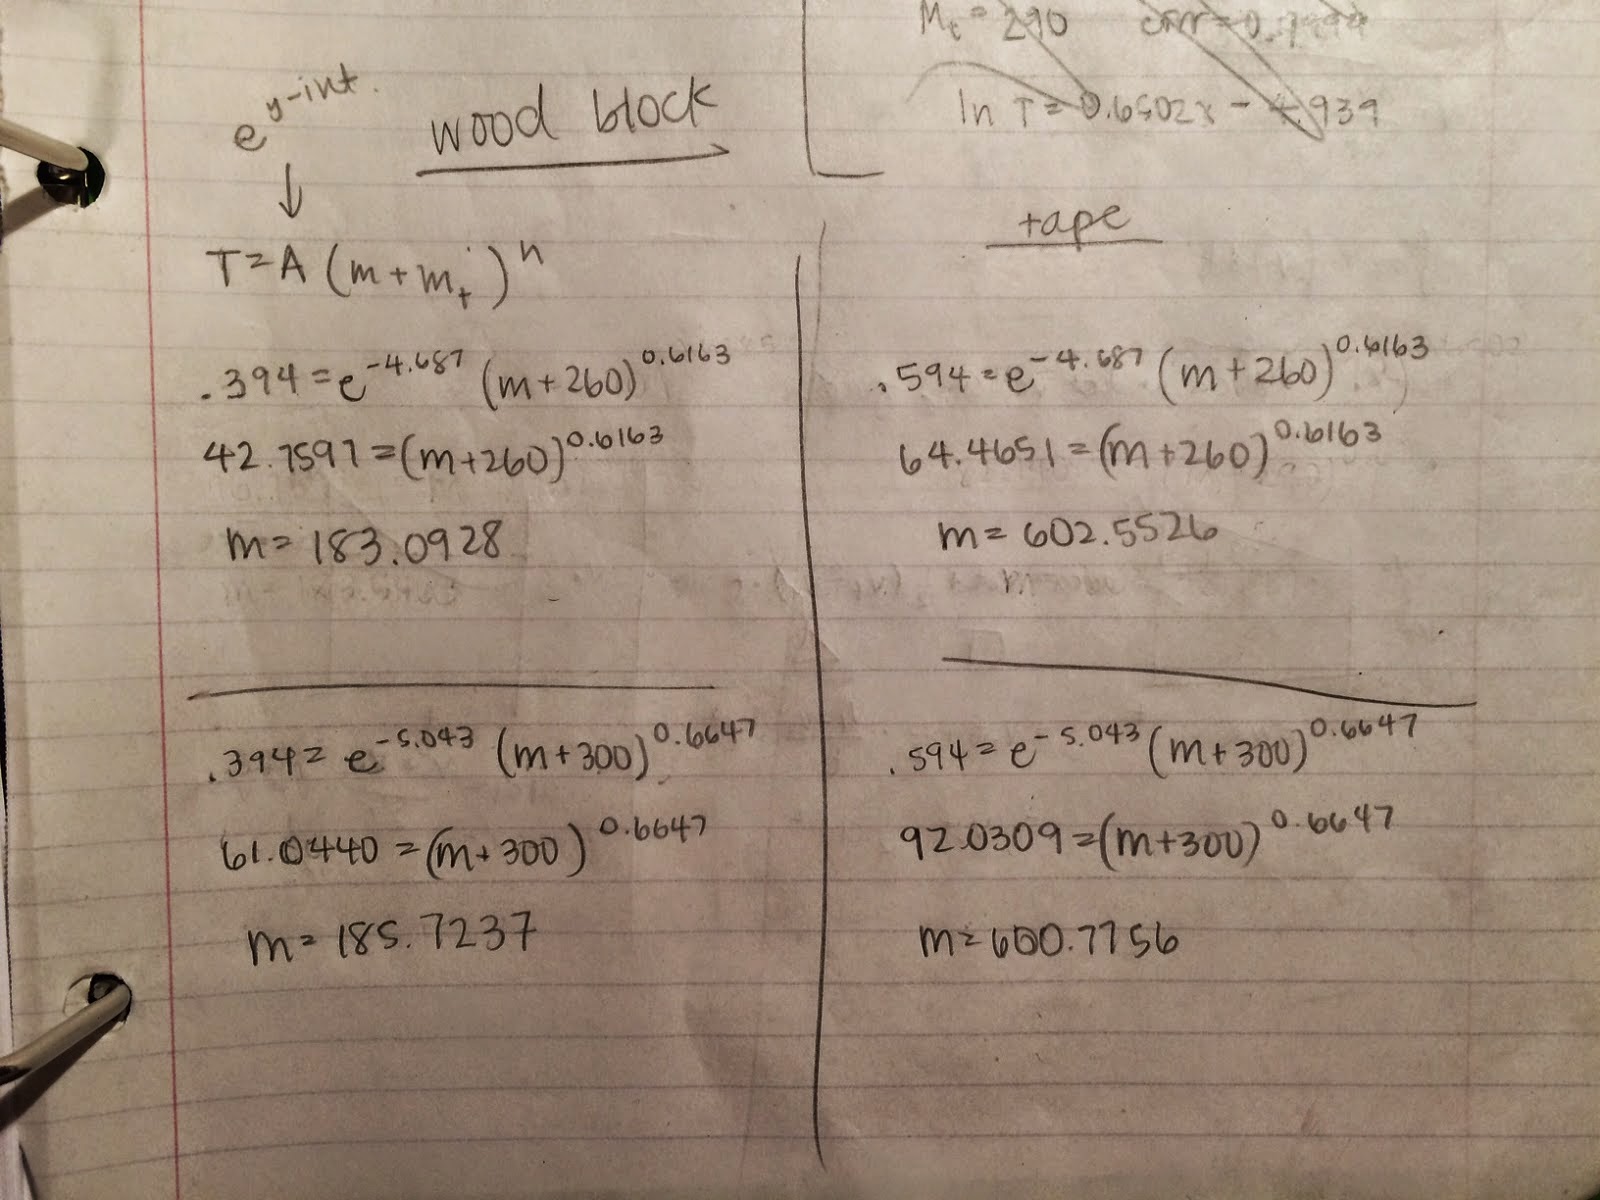 Mt = 290
ln T = 0.6502x - 4.939
e^y-int.
↓
wood block
T = A (m + mt)^n
.394 = e^-4.687 (m+260)^0.6163
42.7597 = (m+260)^0.6163
m = 183.0928
.394 = e^-5.043 (m+300)^0.6647
61.0440 = (m+300)^0.6647
m = 185.7237
tape
.594 = e^-4.687 (m+260)^0.6163
64.4651 = (m+260)^0.6163
m = 602.5526
.594 = e^-5.043 (m+300)^0.6647
92.0309 = (m+300)^0.6647
m = 600.7756